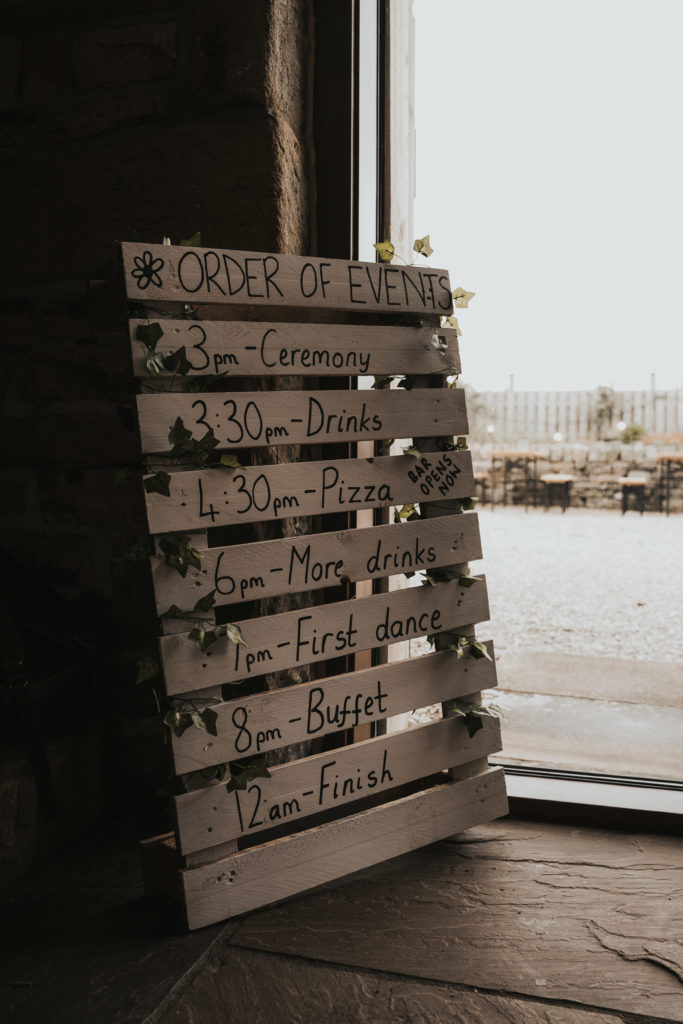 ORDER OF EVENTS
3pm - Ceremony
3:30pm - Drinks
4:30pm - Pizza
BAR
OPENS
NOW
6pm - More drinks
7pm - First dance
8pm - Buffet
12am - Finish